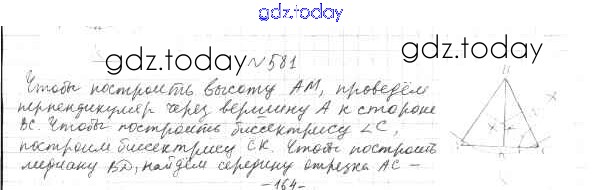 gdz.today
gdz.today №581 gdz.today
Чтобы построить высоту AM, проведём
перпендикуляр через вершину A к стороне
BC. Чтобы построить биссектрису ∠C,
построим биссектрису CK. Чтобы построить
медиану BD, найдём середину отрезка AC –
-164-